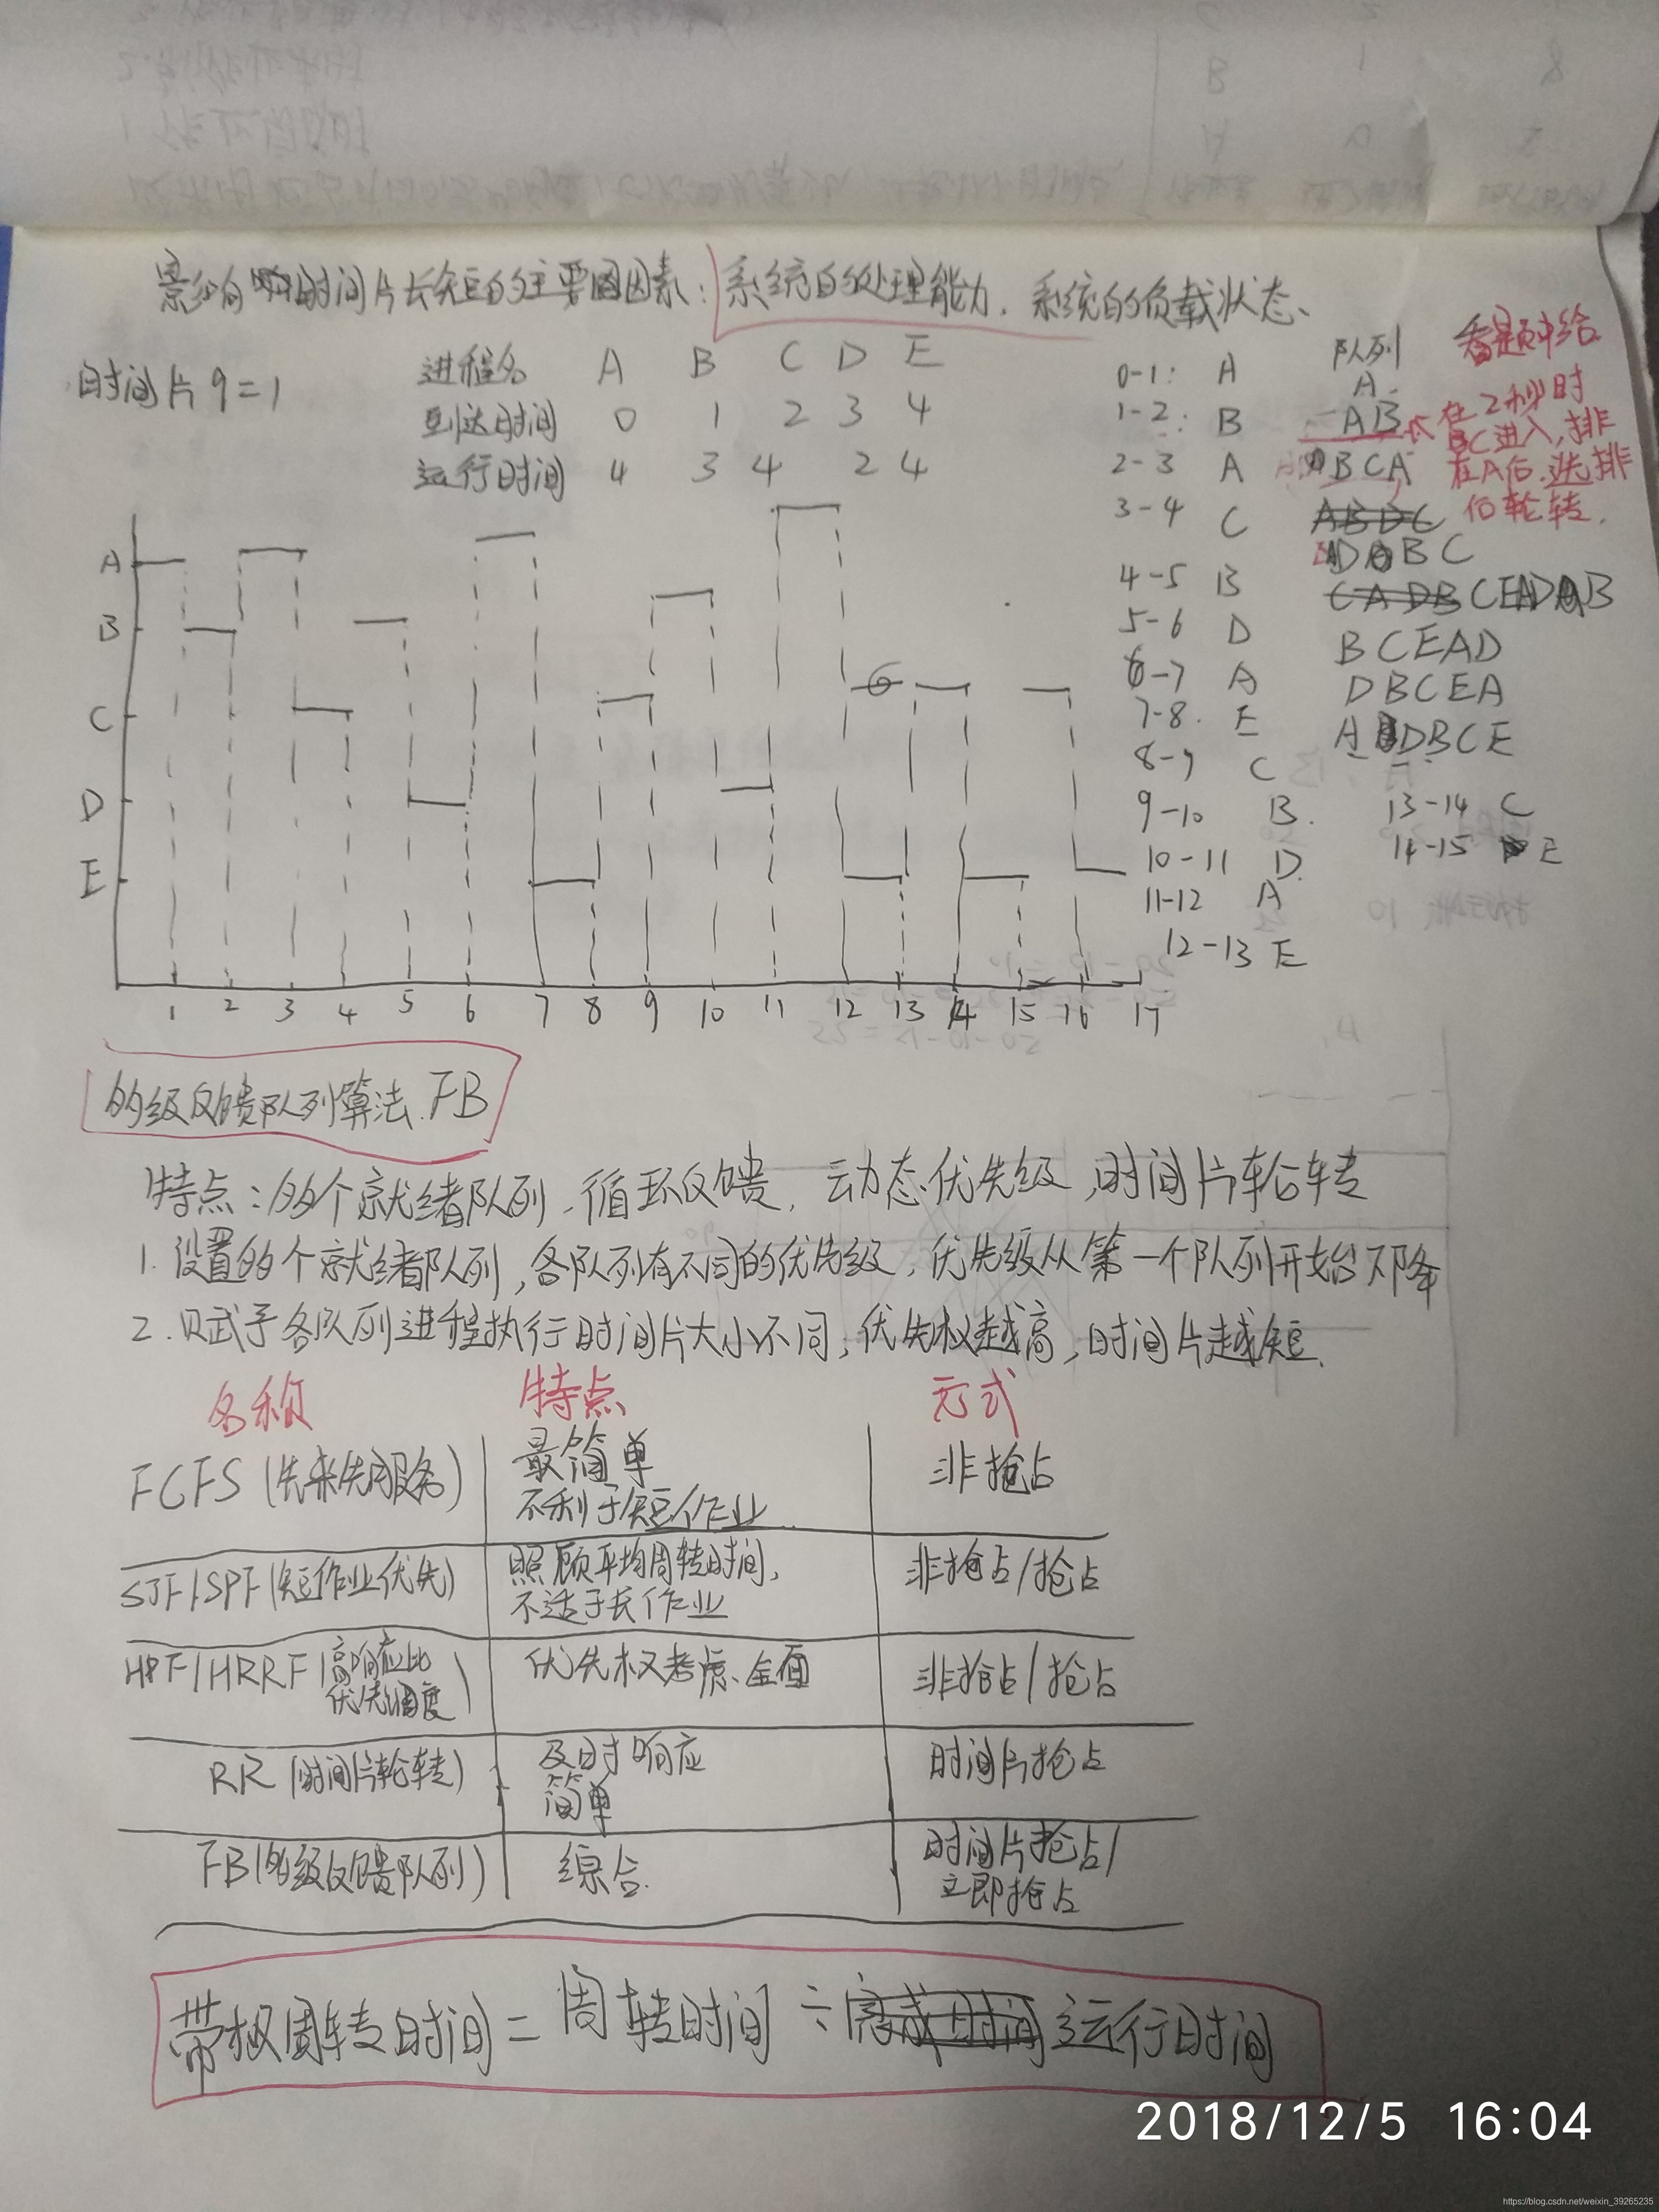 影响时间片长短的主要因素：系统的处理能力、系统的负载状态、
时间片 q=1
进程名 A B C D E
到达时间 0 1 2 3 4
运行时间 4 3 4 2 4
队列
看题中给
0-1: A A
1-2: B AB
2-3 A BCA
在2秒时
C进入，排
在A后，先排
后轮转.
3-4 C ABDC
DABC
4-5 B CADB CEADB
5-6 D BCEAD
6-7 A DBCEA
7-8. E ADBCE
8-9 C
9-10 B. 13-14 C
10-11 D. 14-15 E
11-12 A
12-13 E
A
B
C
D
E
1 2 3 4 5 6 7 8 9 10 11 12 13 14 15 16 17
多级反馈队列算法. FB
特点：多个就绪队列、循环反馈，动态优先级，时间片轮转
1. 设置多个就绪队列，各队列有不同的优先级，优先级从第一个队列开始下降
2. 赋予各队列进程执行时间片大小不同，优先权越高，时间片越短.
名称 特点 方式
FCFS (先来先服务) 最简单
不利于短作业 非抢占
SJF/SPF (短作业优先) 照顾平均周转时间，
不适于长作业 非抢占/抢占
HPF/HRRF (高响应比
优先调度) 优先权考虑全面 非抢占/抢占
RR (时间片轮转) 及时响应
简单 时间片抢占
FB (多级反馈队列) 综合. 时间片抢占/
立即抢占
带权周转时间 = 周转时间 ÷ 完成时间 运行时间
2018/12/5 16:04
https://blog.csdn.net/weixin_39265235